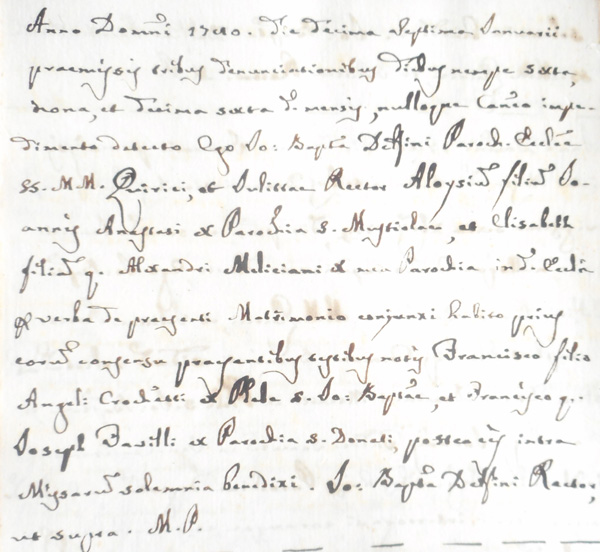 Anno Domini 1740. die decima septima Januarii
praemissis tribus denunciationibus diebus nempe sexta,
nona, et decima sexta d. mensis, nulloque Can.co impe-
dimento detecto Ego Jo: Bapta Delfini Paroch. Eccl.ae
SS. M M. Quirici, et Julittae Rector Aloysiū filiū Jo-
annis Anastasi ex Parochia S. Mustiolae, et Elisabeth
filiā q. Alexandri Meliciani ex mea Parochia in d. Eccl.a
P verba de praesenti Matrimonio conjunxi habito prius
eorū consensu praesentibus testibus notis Francisco filio
Angeli Croduetti ex Plebe S. Jo: Baptae, et Francisco q.
Joseph Fasilli ex Parochia S. Donati, postea eis intra
Missarū solemnia benedixi. Jo: Bapta Delfini Rector,
ut supra. M. P.